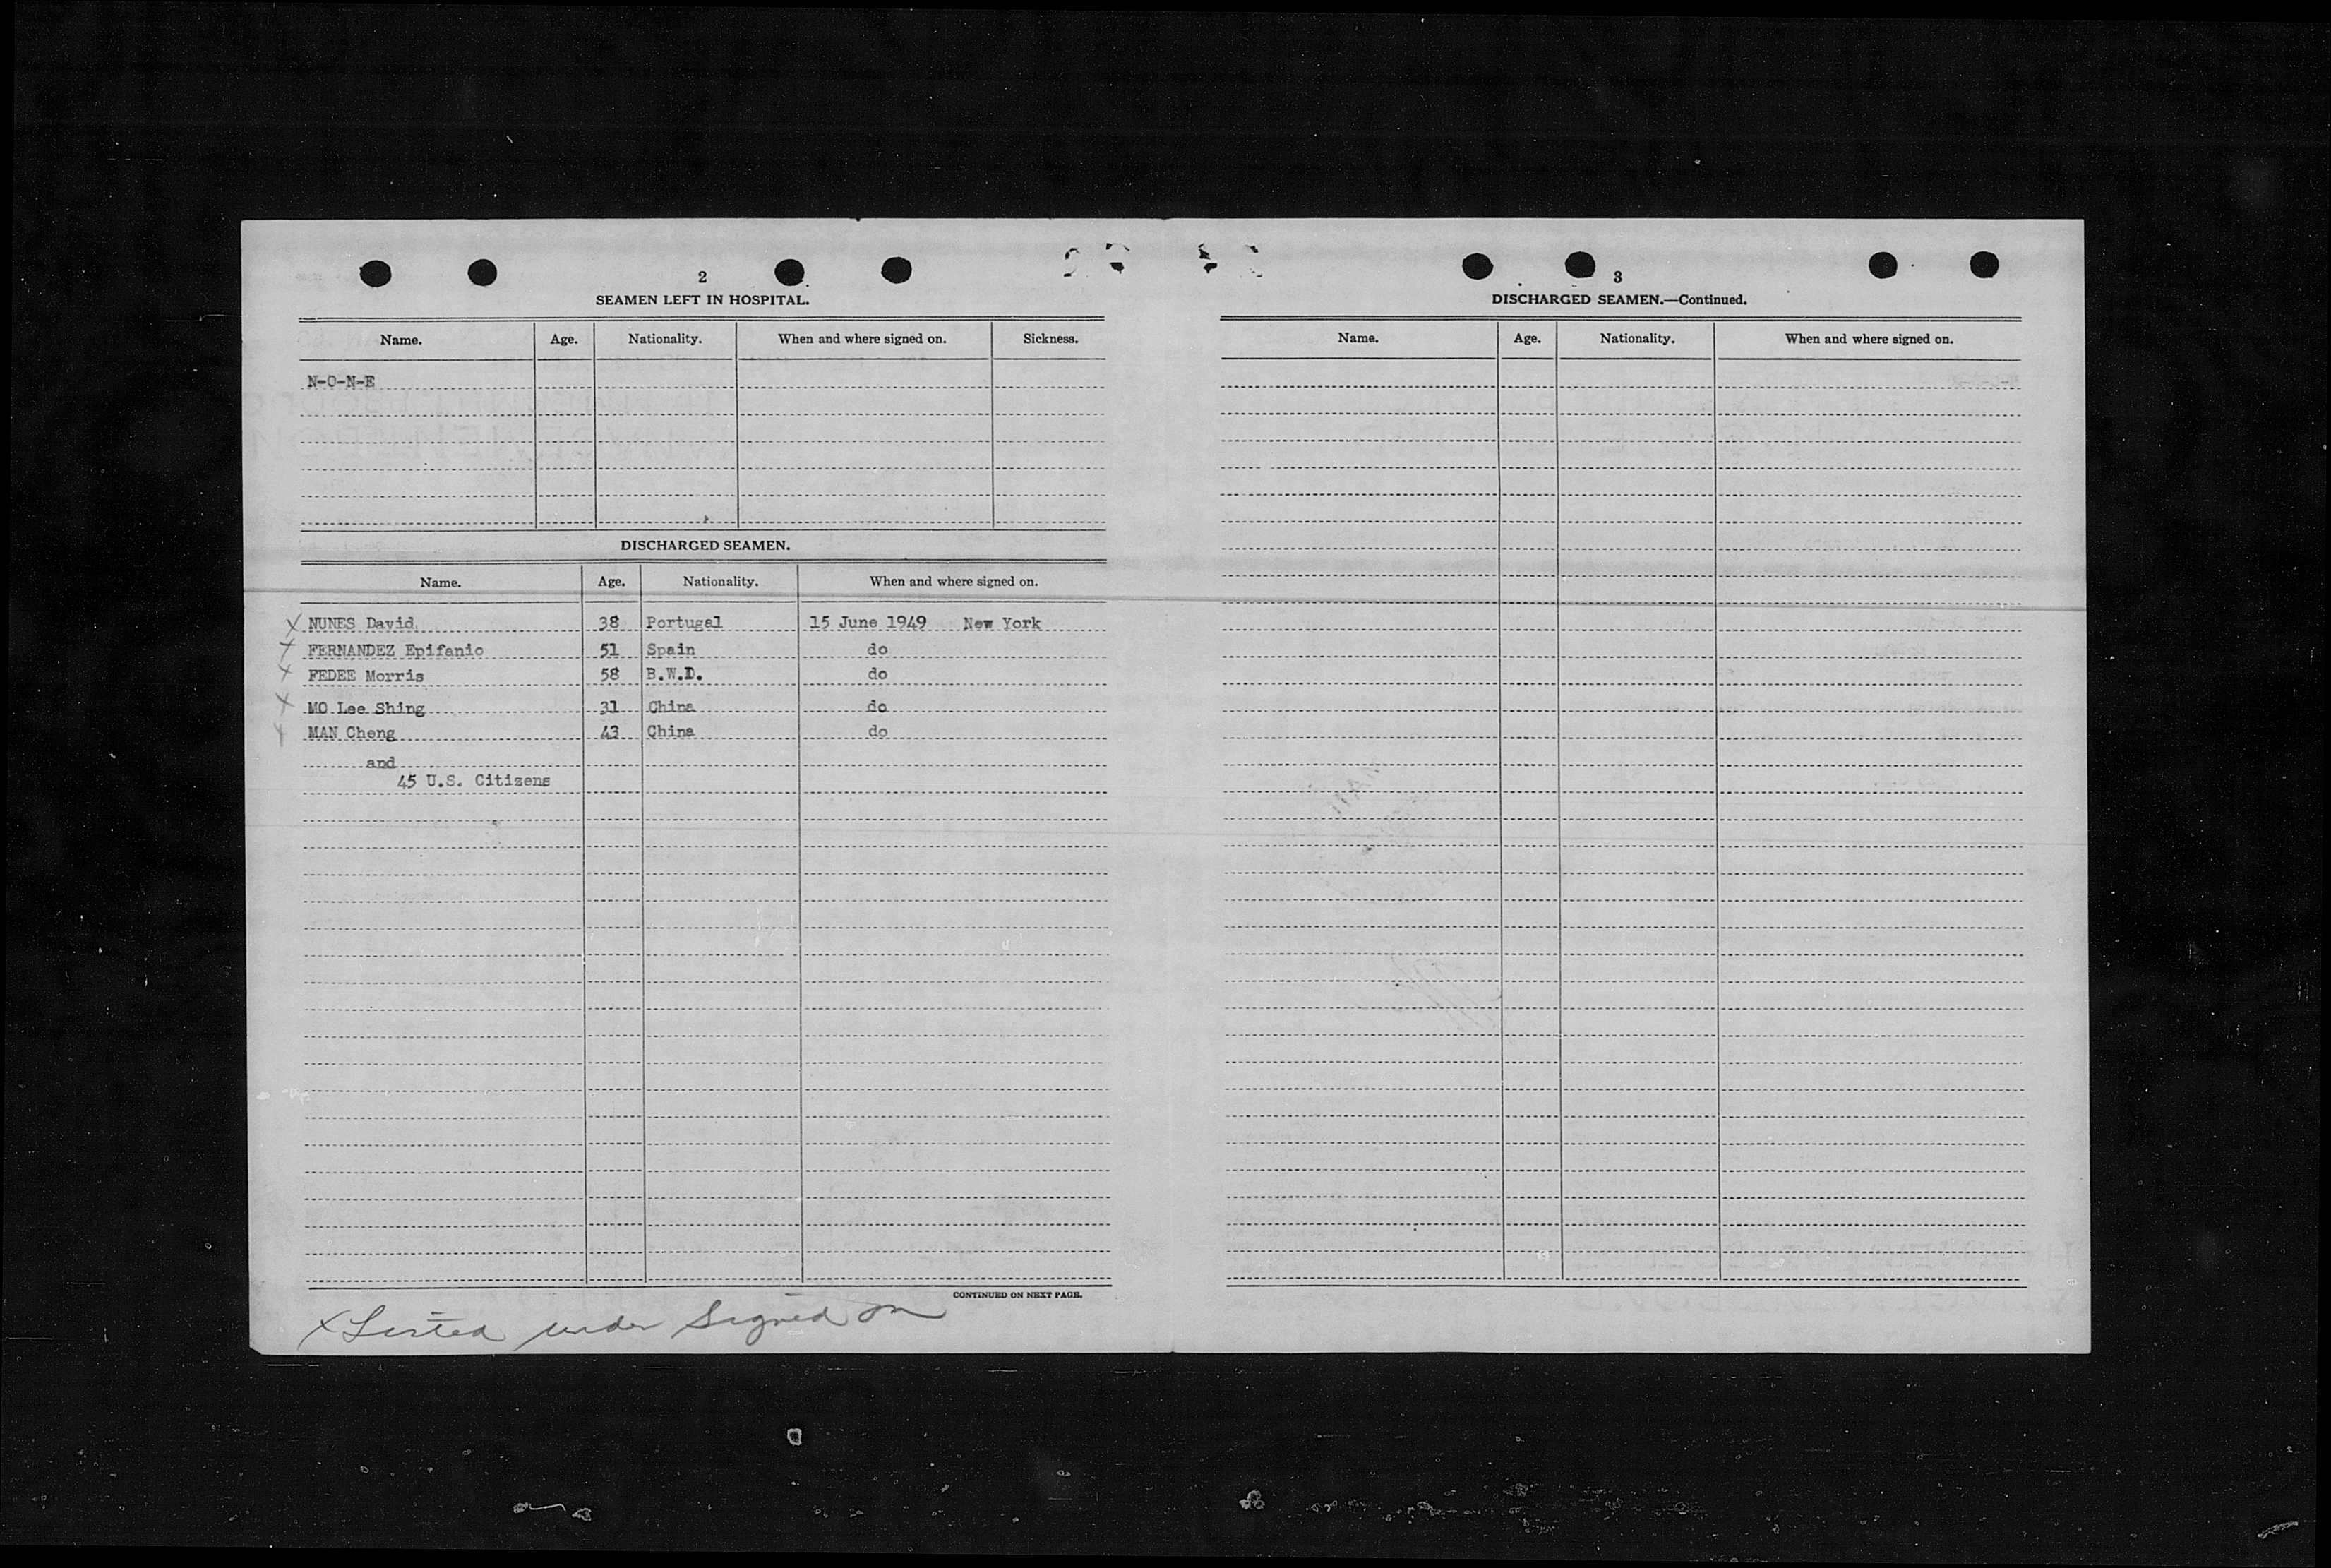 2
SEAMEN LEFT IN HOSPITAL.
Name. Age. Nationality. When and where signed on. Sickness.
N-O-N-E
DISCHARGED SEAMEN.
Name. Age. Nationality. When and where signed on.
X NUNES David 38 Portugal 15 June 1949 New York
X FERNANDEZ Epifanio 51 Spain do
X FEDEE Morris 58 B.W.D. do
X MO Lee Shing 31 China do
X MAN Cheng 43 China do
and
45 U.S. Citizens
CONTINUED ON NEXT PAGE.
X Listed under Signed on
3
DISCHARGED SEAMEN.—Continued.
Name. Age. Nationality. When and where signed on.